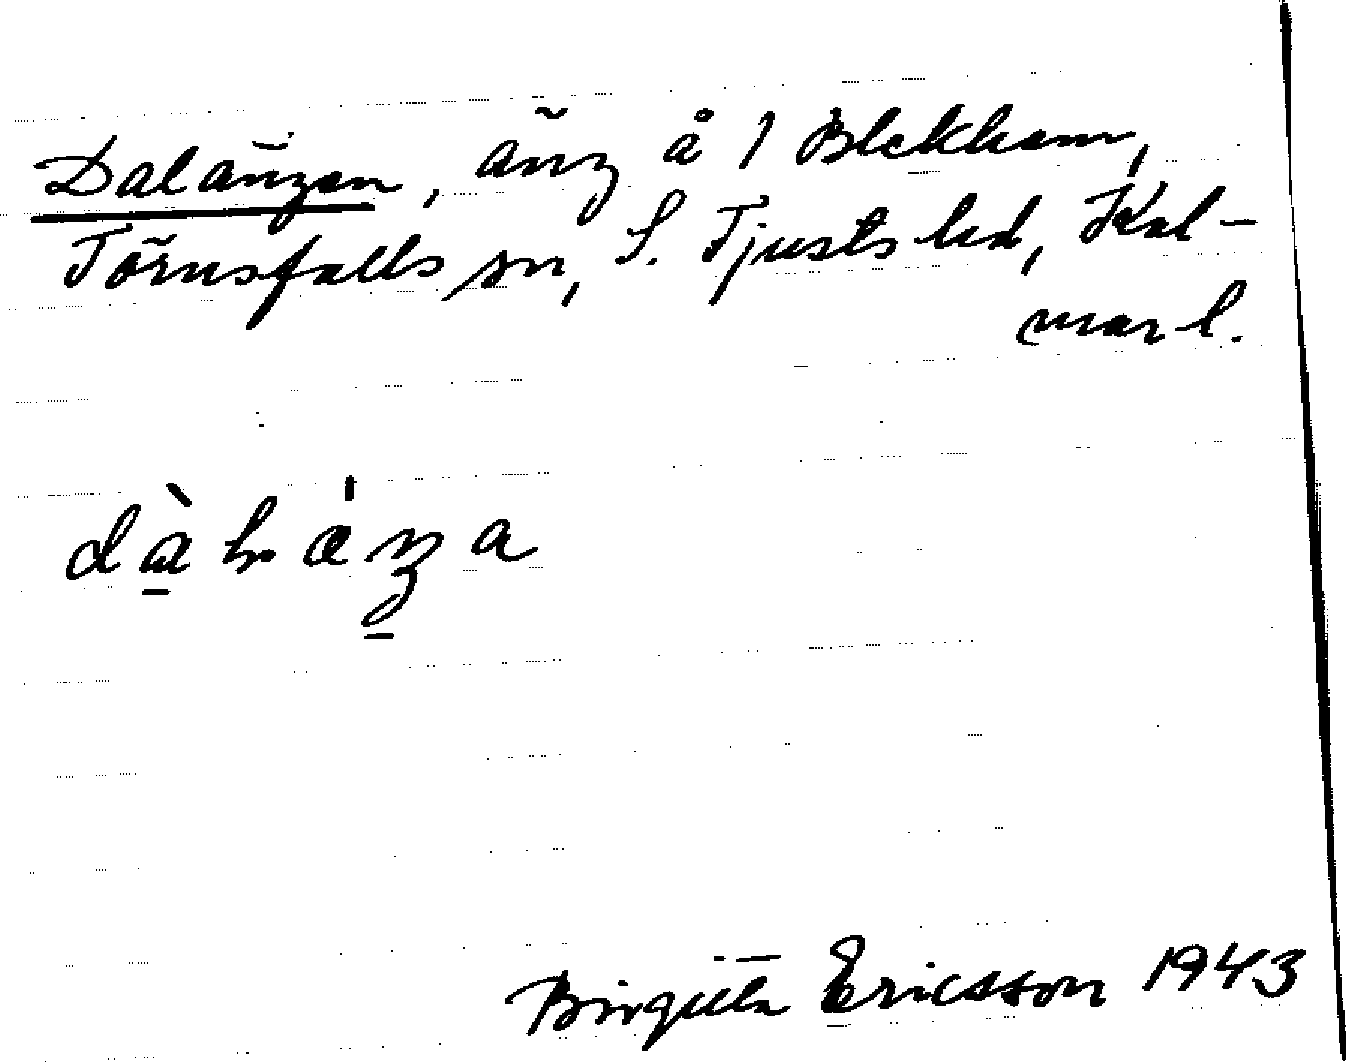 Dalängen, äng å 1 Blekhem,
Törnsfalls sn, S. Tjusts hd, Kal-
mar l.
Birgitta Ericsson 1943